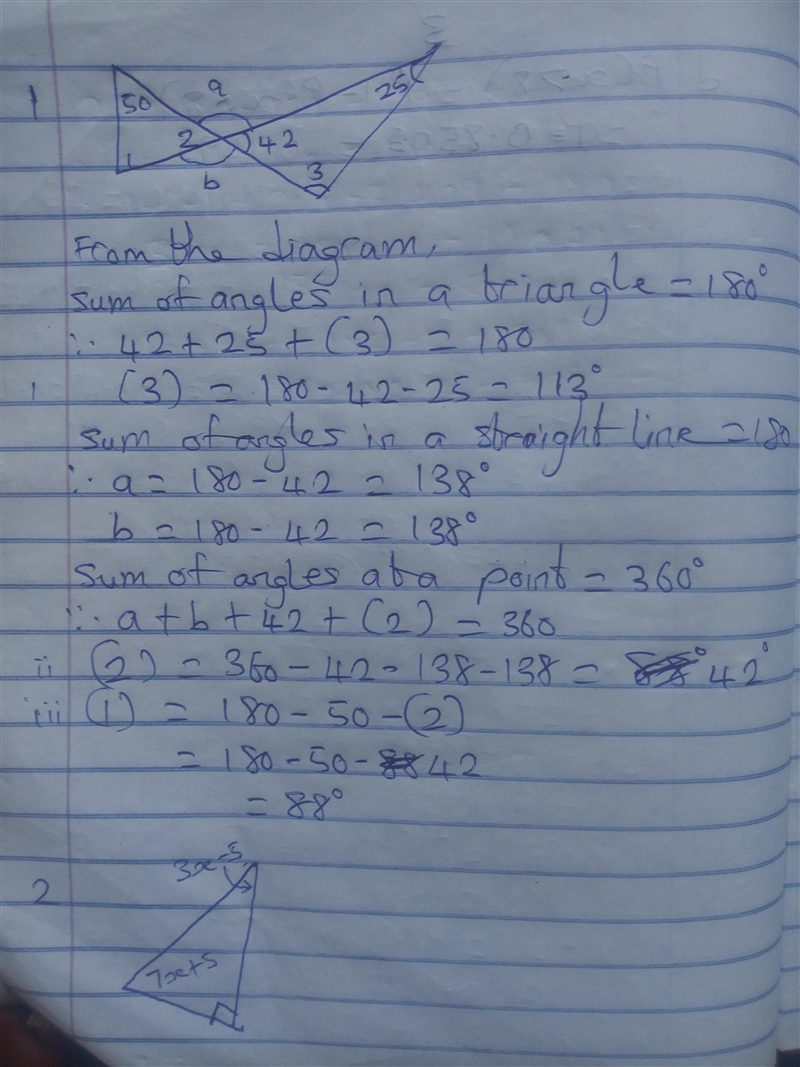 1
50 a 25
2 42
1 b 3
From the diagram,
sum of angles in a triangle = 180°
∴ 42 + 25 + (3) = 180
1 (3) = 180 - 42 - 25 = 113°
sum of angles in a straight line = 180
∴ a = 180 - 42 = 138°
b = 180 - 42 = 138°
Sum of angles at a point = 360°
∴ a + b + 42 + (2) = 360
ii (2) = 360 - 42 - 138 - 138 = 88° 42°
iii (1) = 180 - 50 - (2)
= 180 - 50 - 88 42
= 88°
2
3x-5
7x+5